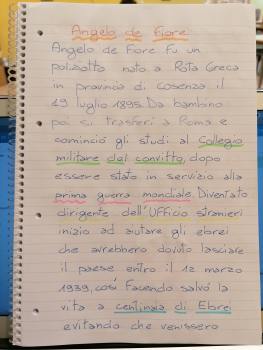 Angelo de Fiore
Angelo de Fiore fu un
poliziotto nato a Rota Greca
in provincia di Cosenza il
19 luglio 1895. Da bambino
poi si trasferì a Roma e
cominciò gli studi al Collegio
militare dal convitto, dopo
essere stato in servizio alla
prima guerra mondiale. Diventato
dirigente dell'Ufficio stranieri
iniziò ad aiutare gli ebrei
che avrebbero dovuto lasciare
il paese entro il 12 marzo
1939, così facendo salvò la
vita a centinaia di Ebrei
evitando che venissero